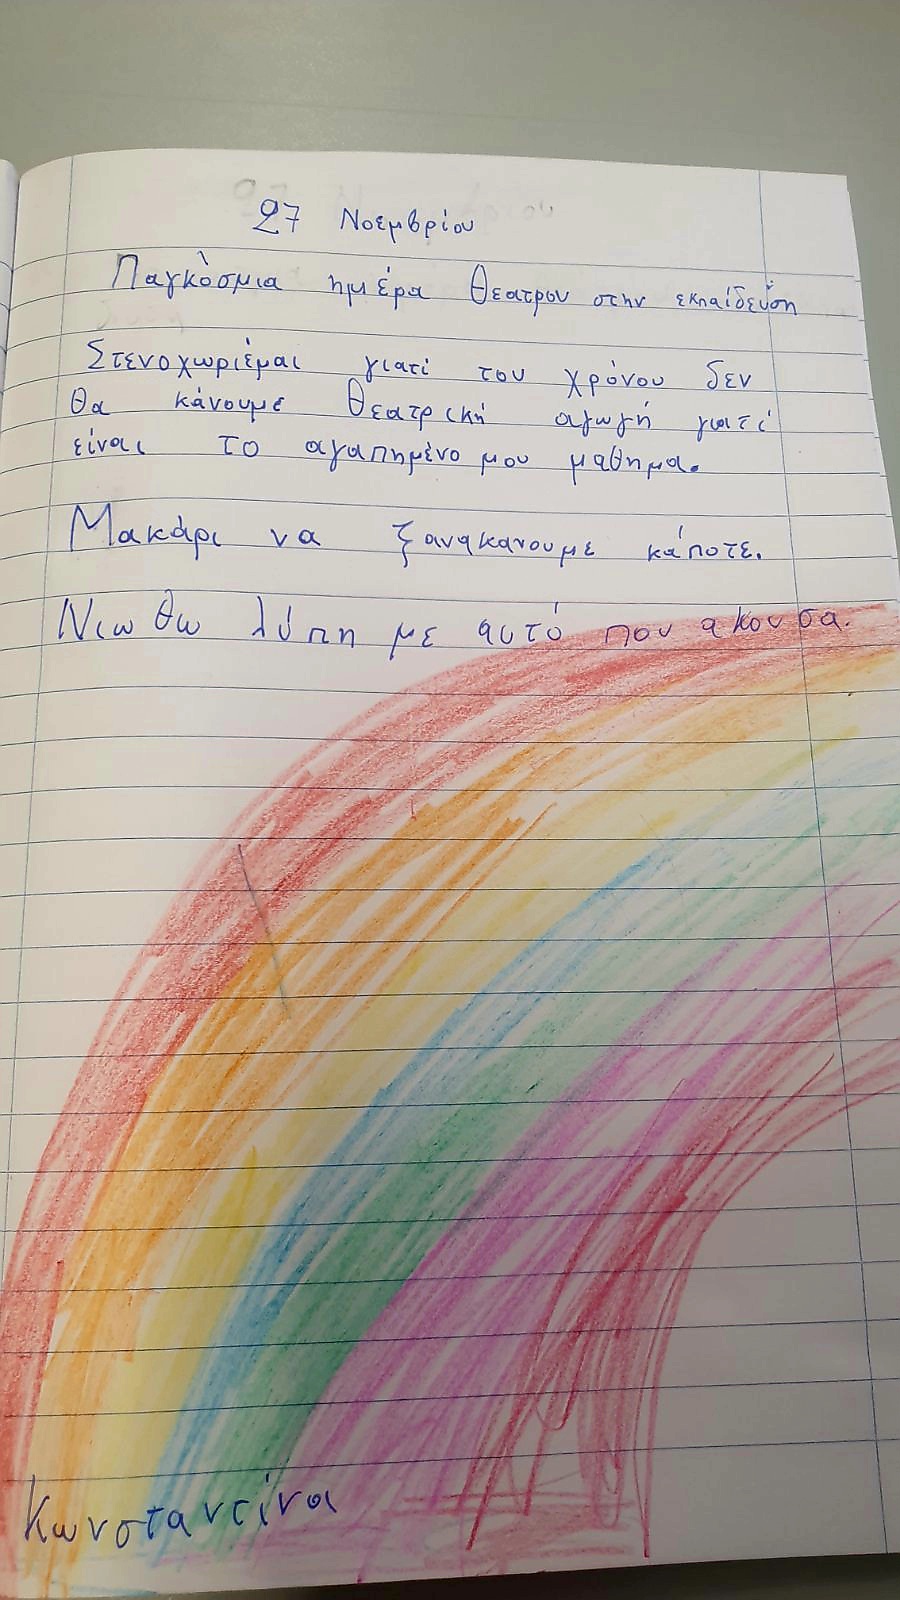 27 Νοεμβρίου
Παγκόσμια ημέρα θεατρου στην εκπαίδευση
Στενοχωριέμαι γιατί του χρόνου δεν
θα κάνουμε θεατρική αγωγή γιατί
είναι το αγαπημένο μου μαθημα.
Μακάρι να ξανακανουμε κάποτε.
Νιωθω λύπη με αυτό που ακουσα.
Κωνσταντίνα